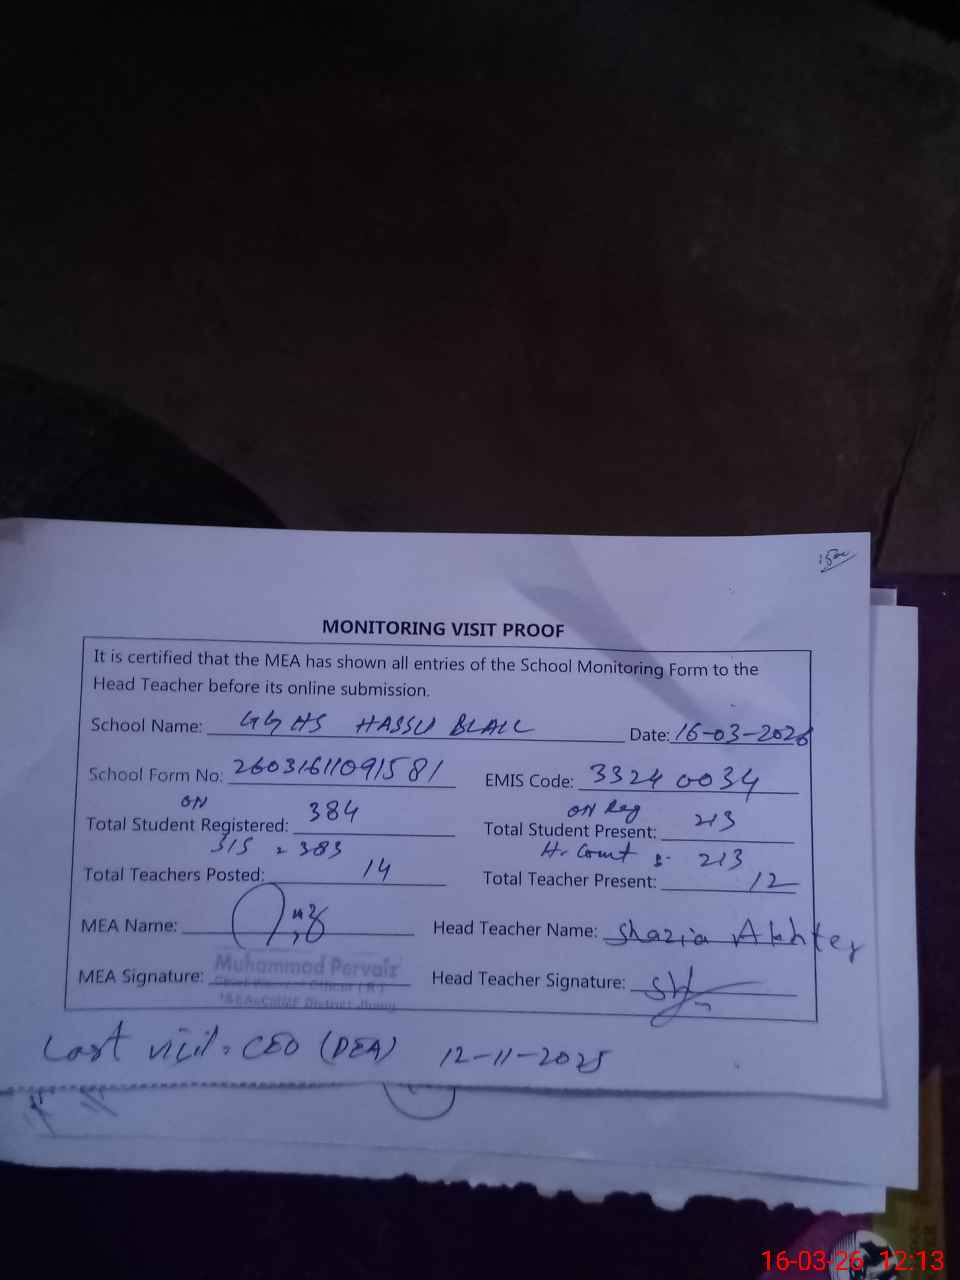 MONITORING VISIT PROOF
It is certified that the MEA has shown all entries of the School Monitoring Form to the
Head Teacher before its online submission.
School Name: GGHS HASSU BLAIL Date: 16-03-2026
School Form No: 26031611091581 EMIS Code: 33240034
ON ON Reg
Total Student Registered: 384 Total Student Present: 213
315 = 383 H. Count 213
Total Teachers Posted: 14 Total Teacher Present: 12
MEA Name: Head Teacher Name: Shazia Akhter
MEA Signature: Muhammad Pervaiz Head Teacher Signature:
District Jhang
Last visit: CEO (DEA) 12-11-2025
16-03-26 12:13